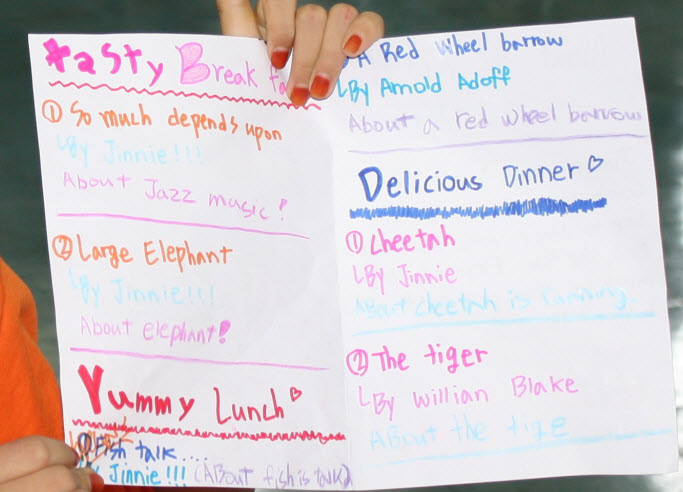 tasty Break
① So much depends upon
By Jinnie!!!
About Jazz music!
② Large Elephant
By Jinnie!!!
About elephant!
Yummy Lunch
① Fish talk....
By Jinnie!!! (ABout fish is talk)
A Red wheel barrow
By Arnold Adoff
About a red wheel barrow
Delicious Dinner
① cheetah
By Jinnie
About cheetah is running.
② The tiger
By Willian Blake
ABout the tige